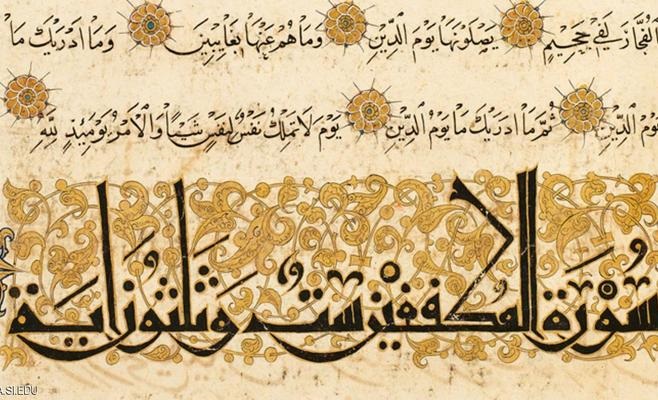 الفُجَّارَ لَفِي جَحِيمٍ يَصْلَوْنَهَا يَوْمَ الدِّينِ وَمَا هُمْ عَنْهَا بِغَايِبِينَ وَمَا ادْرَيكَ مَا
يَوْمُ الدِّينِ ثُمَّ مَا ادْرَيكَ مَا يَوْمُ الدِّينِ يَوْمَ لَا تَمْلِكُ نَفْسٌ لِنَفْسٍ شَيْئًا وَالْأَمْرُ يَوْمَئِذٍ لِلَّهِ
سُورَةُ المطففين ست وثلثون اية
A.SI.EDU